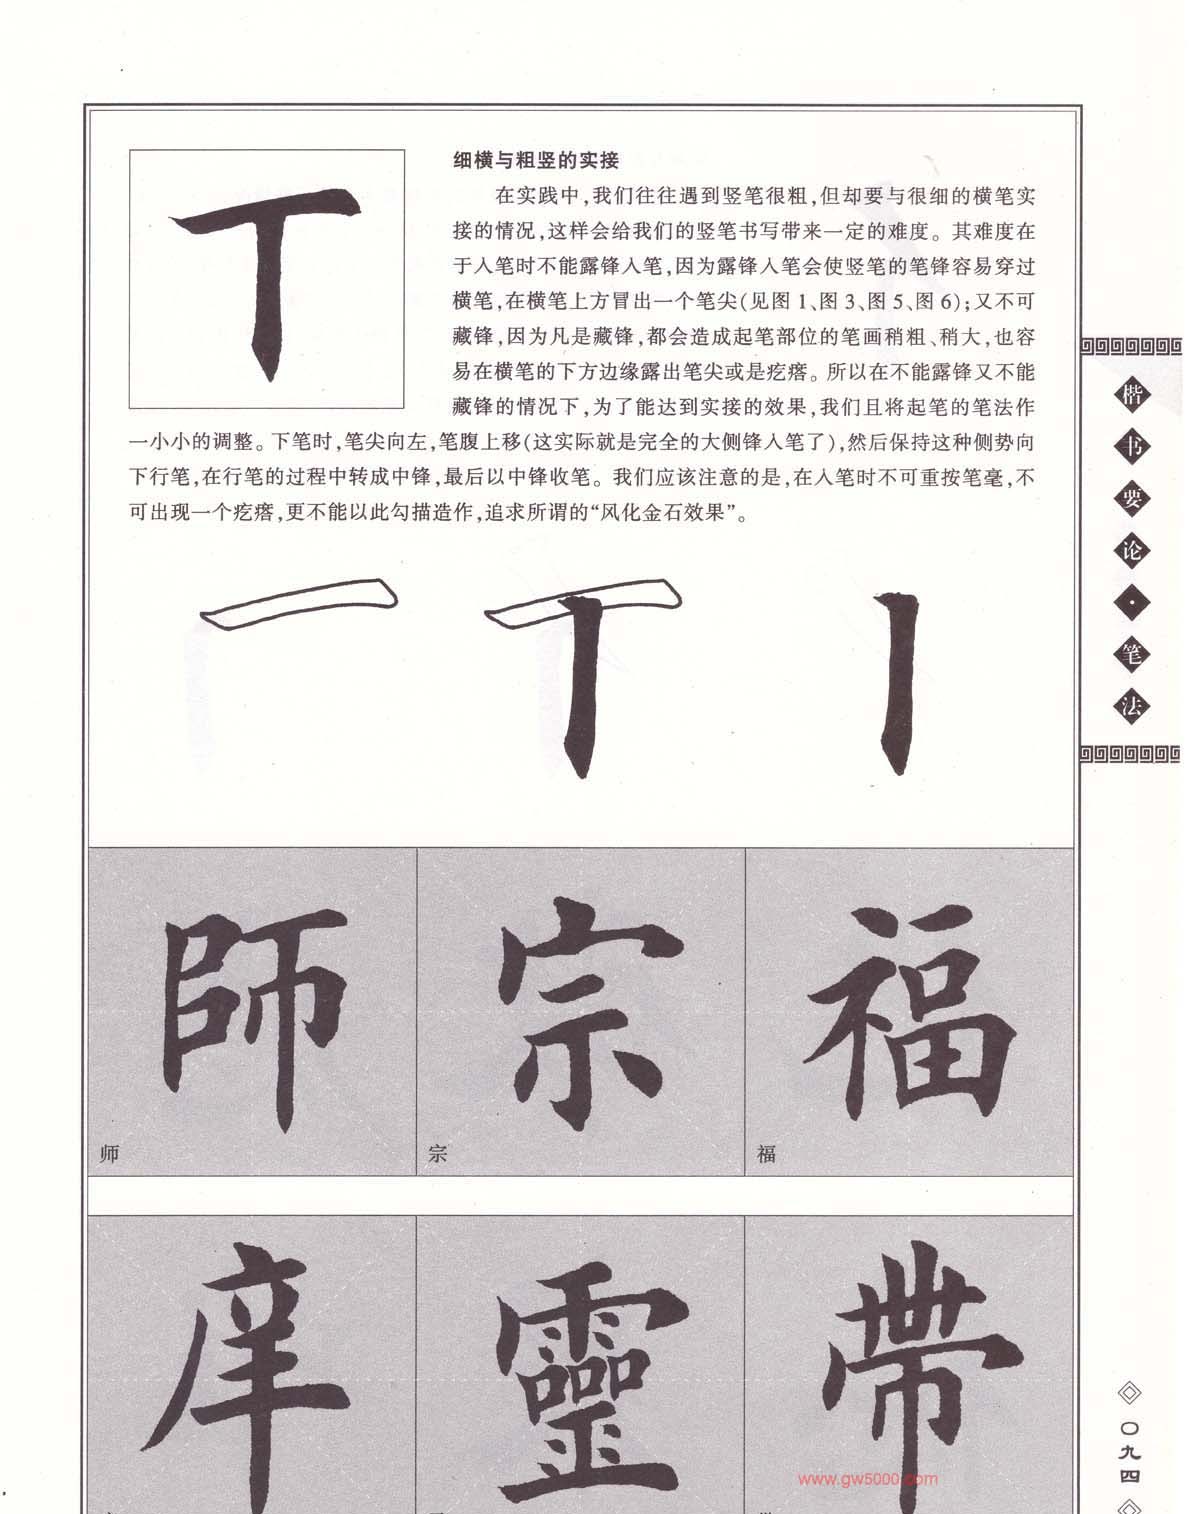 细横与粗竖的实接
在实践中,我们往往遇到竖笔很粗,但却要与很细的横笔实
接的情况,这样会给我们的竖笔书写带来一定的难度。其难度在
于入笔时不能露锋入笔,因为露锋入笔会使竖笔的笔锋容易穿过
横笔,在横笔上方冒出一个笔尖(见图1、图3、图5、图6);又不可
藏锋,因为凡是藏锋,都会造成起笔部位的笔画稍粗、稍大,也容
易在横笔的下方边缘露出笔尖或是疙瘩。所以在不能露锋又不能
藏锋的情况下,为了能达到实接的效果,我们且将起笔的笔法作
一小小的调整。下笔时,笔尖向左,笔腹上移(这实际就是完全的大侧锋入笔了),然后保持这种侧势向
下行笔,在行笔的过程中转成中锋,最后以中锋收笔。我们应该注意的是,在入笔时不可重按笔毫,不
可出现一个疙瘩,更不能以此勾描造作,追求所谓的“风化金石效果”。
師 宗 福
师 宗 福
庠 靈 帶
www.gw5000.com
楷书要论·笔法
〇九四